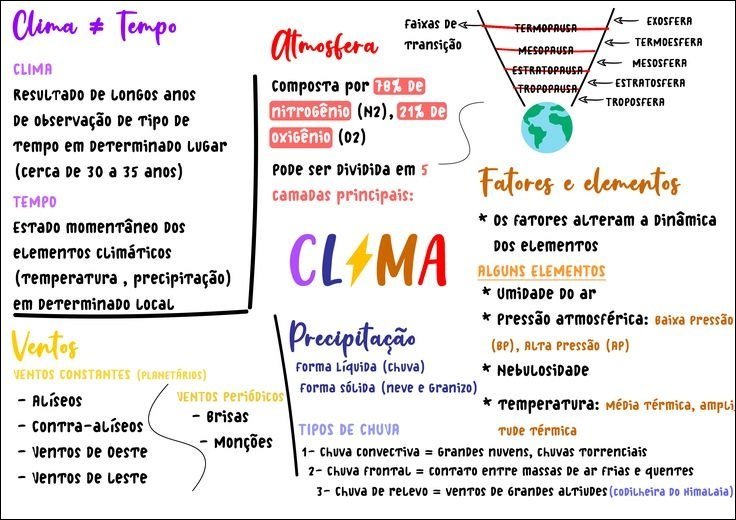 Clima ≠ Tempo
CLIMA
Resultado de longos anos
de observação de tipo de
tempo em determinado lugar
(cerca de 30 a 35 anos)
TEMPO
Estado momentâneo dos
elementos climáticos
(temperatura , precipitação)
em determinado local
Atmosfera
Composta por 78% de
nitrogênio (N2), 21% de
oxigênio (O2)
Pode ser dividida em 5
camadas principais:
Faixas de
transição
TERMOPAUSA
MESOPAUSA
ESTRATOPAUSA
TROPOPAUSA
EXOSFERA
TERMOESFERA
MESOSFERA
ESTRATOSFERA
TROPOSFERA
CLIMA
Fatores e elementos
* Os fatores alteram a dinâmica
dos elementos
ALGUNS ELEMENTOS
* Umidade do ar
* Pressão atmosférica: Baixa Pressão
(BP), Alta Pressão (AP)
* Nebulosidade
* Temperatura: Média térmica, ampli
tude térmica
Ventos
VENTOS CONSTANTES (PLANETÁRIOS)
- Alíseos
- Contra-alíseos
- Ventos de Oeste
- Ventos de Leste
VENTOS PERIÓDICOS
- Brisas
- Monções
Precipitação
Forma líquida (chuva)
Forma sólida (neve e granizo)
TIPOS DE CHUVA
1- Chuva convectiva = Grandes nuvens, chuvas torrenciais
2- Chuva frontal = contato entre massas de ar frias e quentes
3- Chuva de relevo = ventos de grandes altiudes (Codilheira do Himalaia)